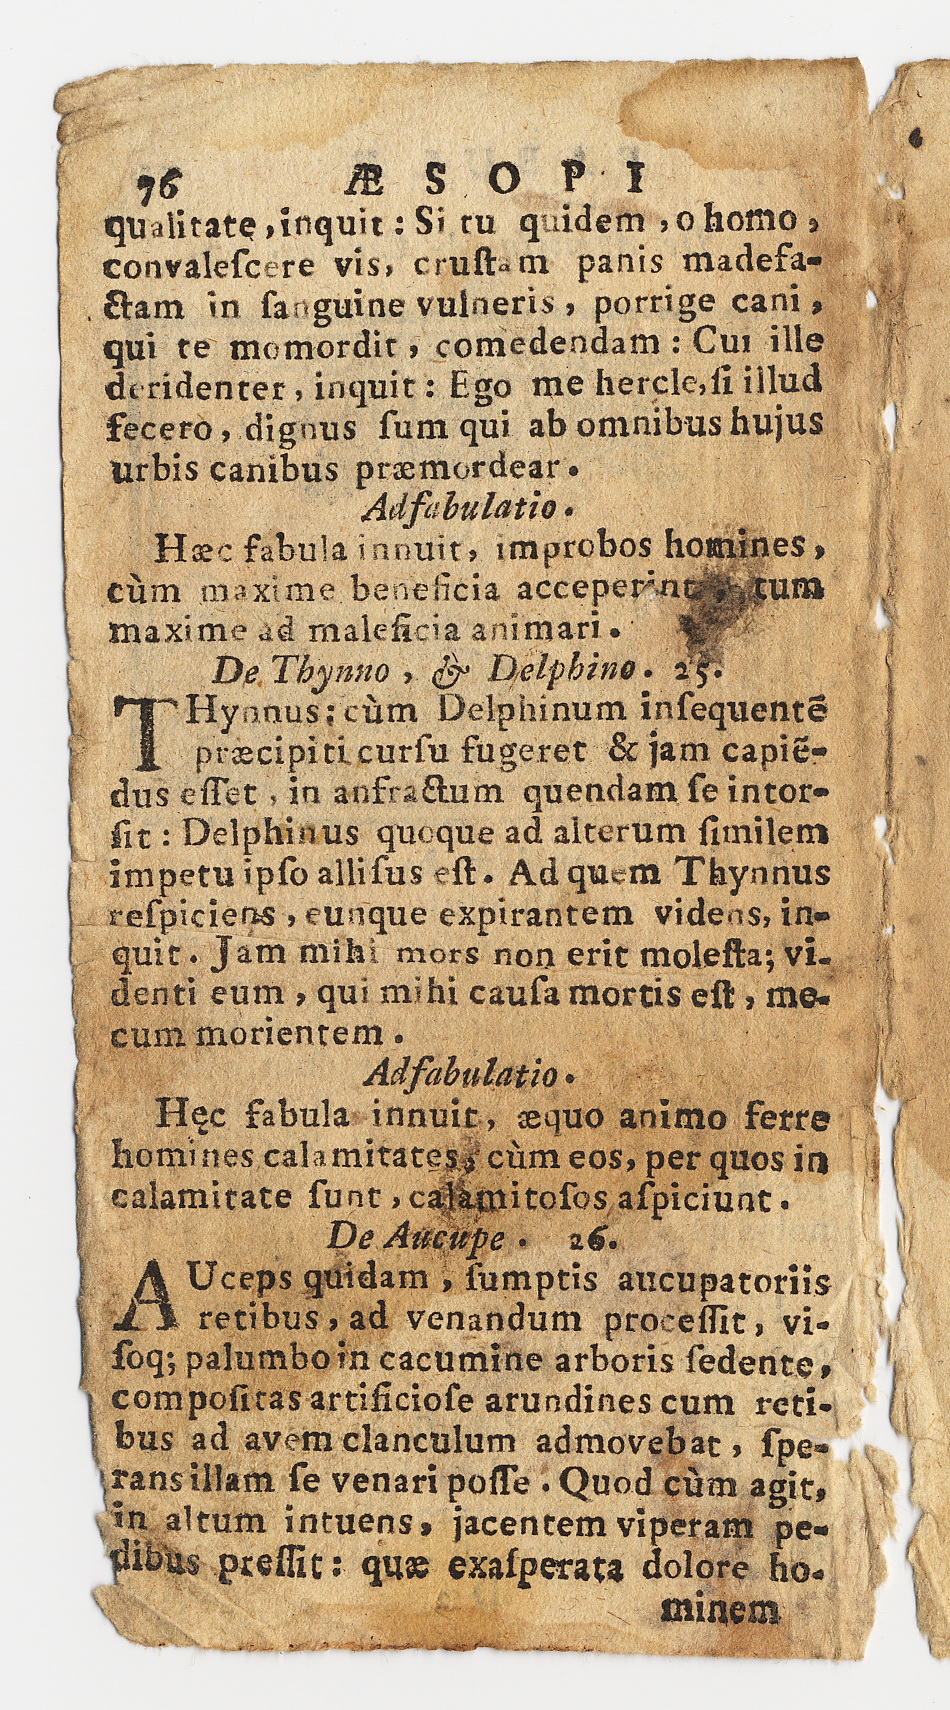 76 ÆSOPI
qualitatę, inquit: Si tu quidem, o homo,
convaleſcere vis, cruſtam panis madefa-
ctam in ſanguine vulneris, porrige cani,
qui te momordit, comedendam: Cui ille
deridenter, inquit: Ego me hercle, ſi illud
fecero, dignus ſum qui ab omnibus hujus
urbis canibus præmordear.
Adfabulatio.
Hæc fabula innuit, improbos homines,
cùm maxime beneficia acceperint, tum
maxime ad maleficia animari.
De Thynno, & Delphino. 25.
THynnus; cùm Delphinum inſequentẽ
præcipiti curſu fugeret & jam capiẽ-
dus eſſet, in anfractum quendam ſe intor-
ſit: Delphinus quoque ad alterum ſimilem
impetu ipſo alliſus eſt. Ad quem Thynnus
reſpiciens, eunque expirantem videns, in-
quit. Jam mihi mors non erit moleſta; vi-
denti eum, qui mihi cauſa mortis eſt, me-
cum morientem.
Adfabulatio.
Hęc fabula innuit, æquo animo ferre
homines calamitates, cùm eos, per quos in
calamitate ſunt, calamitoſos aſpiciunt.
De Aucupe. 26.
AUceps quidam, ſumptis aucupatoriis
retibus, ad venandum proceſſit, vi-
ſoq; palumbo in cacumine arboris ſedente,
compoſitas artificioſe arundines cum reti-
bus ad avem clanculum admovebat, ſpe-
rans illam ſe venari poſſe. Quod cùm agit,
in altum intuens, jacentem viperam pe-
dibus preſſit: quæ exaſperata dolore ho-
minem